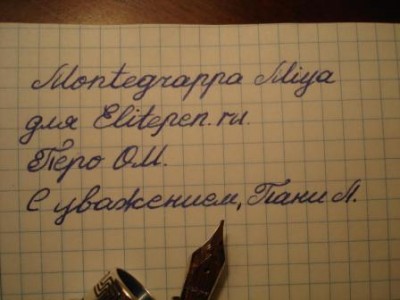 Montegrappa Miya
для Elitepen.ru.
Перо ОМ.
С уважением, Пани М.